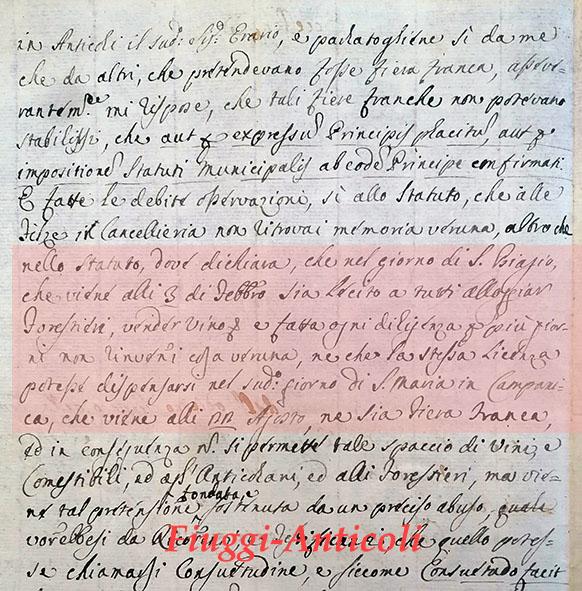 in Anticoli il sud.º Sig.r Erario, e parlatogliene sì da me
che da altri, che pretendevano fosse fiera franca, asseve-
rantem.te mi rispose, che tali fiere franche non potevano
stabilirsi, che aut p expressũ Principis placitũ, aut p
impositionẽ Statuti Municipalis ab eodẽ Principe confirmati.
E fatte le debite osservazioni, sì allo Statuto, che alle
in Cancellieria non ritrovai memoria veruna, altro che
nello Statuto, dove dichiara, che nel giorno di S. Biagio,
che viene alli 3 di Febbro sia lecito a tutti alloggiar
Forestieri, vender vino & e fatta ogni diligenza p più gior-
ni non rinvenni cosa veruna, ne che la stessa licenza
potesse dispensarsi nel sud.º giorno di S. Maria in Campani-
ca, che viene alli Agosto, ne sia Fiera Franca,
ed in conseguenza n. si permette tale spaccio di vini, e
Comestibili, ed Anticolani, ed alli Forestieri, ma vie-
ne tal pretensione fondata, e sostenuta da un preciso abuso, quale
vorebbesi da che quello potes-
se chiamarsi Consuetudine, e siccome Consuetudo facit
Fiuggi-Anticoli